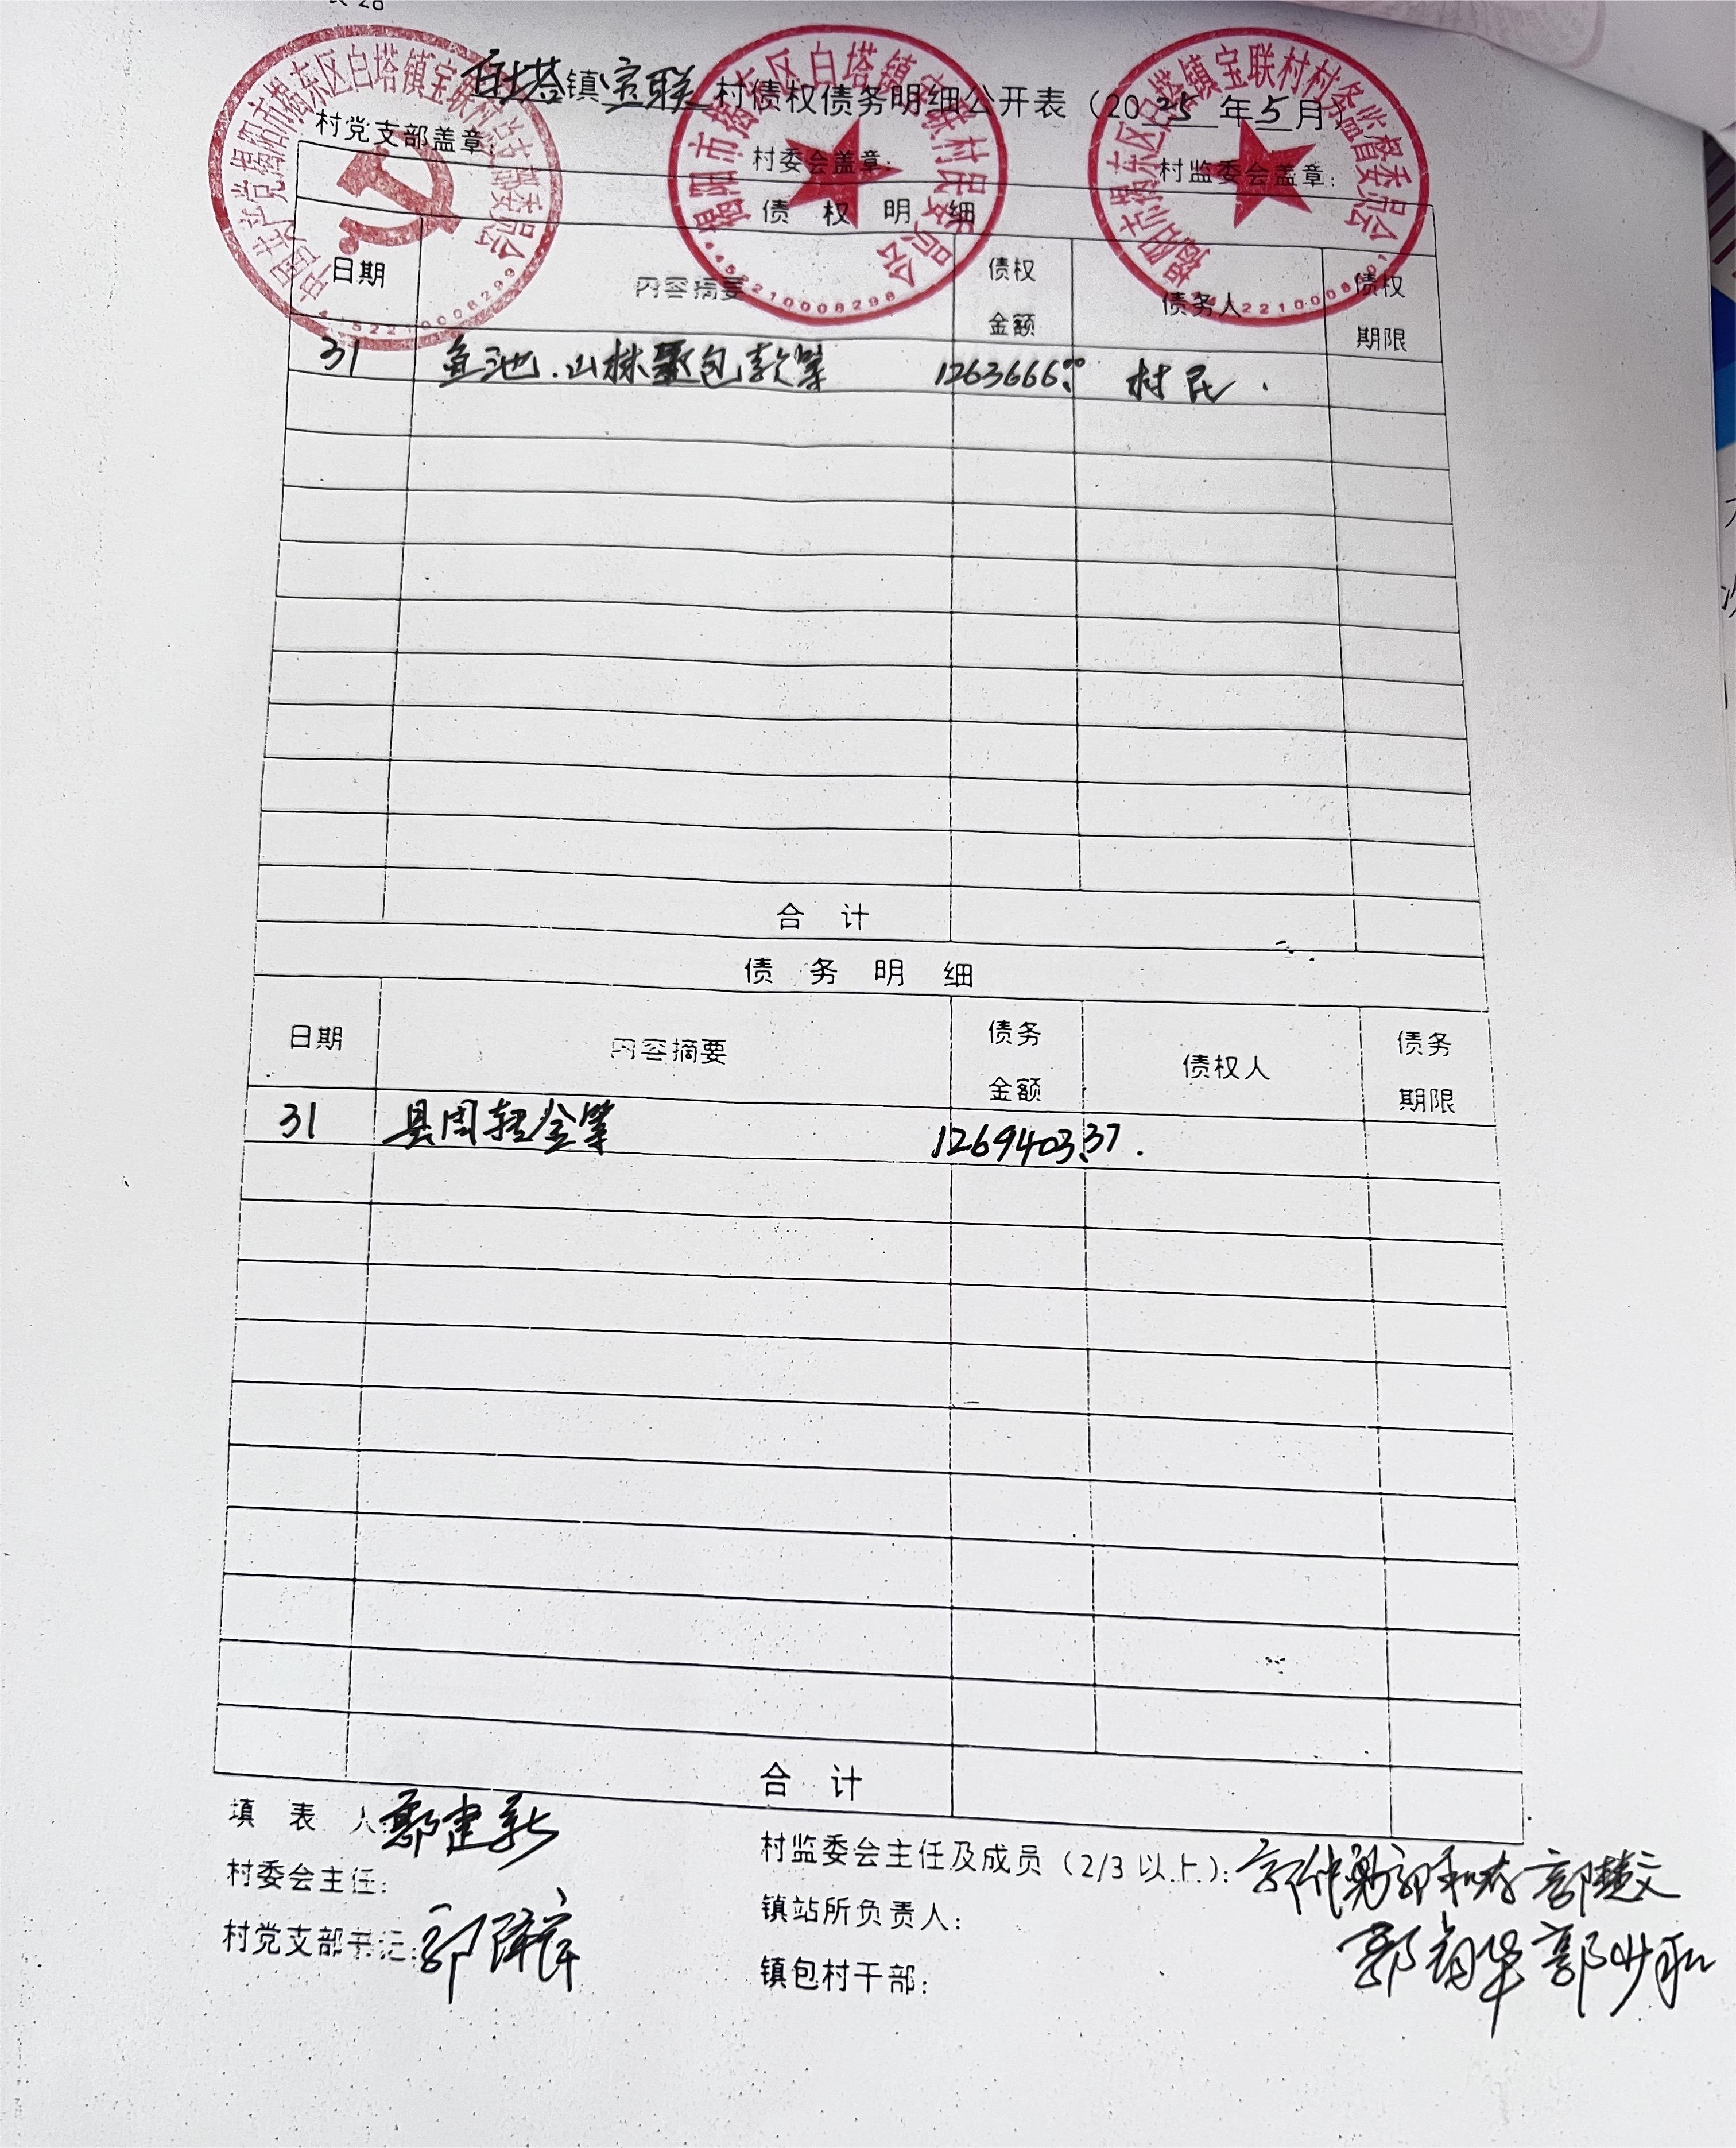 表 28
白塔镇宝联村债权债务明细公开表（2025年5月）
村党支部盖章： 村委会盖章： 村监委会盖章：
债权明细
日期 内容摘要 债权金额 债务人 债权期限
31 鱼池.山林承包款等 1263666.00 村民.
合计
债务明细
日期 内容摘要 债务金额 债权人 债务期限
31 县周转金等 1269403.37.
合计
填表人：郭建新
村委会主任：
村党支部书记：
村监委会主任及成员（2/3以上）：
镇站所负责人：
镇包村干部：
中国共产党揭阳市揭东区白塔镇宝联村总支部委员会
揭阳市揭东区白塔镇宝联村民委员会
4452210008298
揭阳市揭东区白塔镇宝联村村务监督委员会